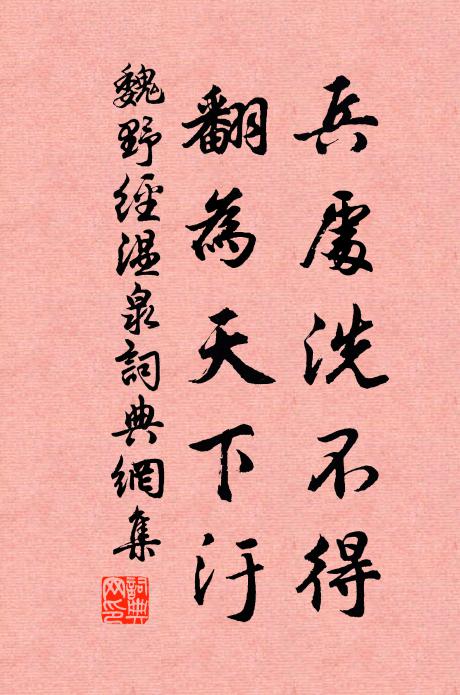 兵處洗不得
翻為天下汙
魏野經温泉詞典網集
詞典
网印